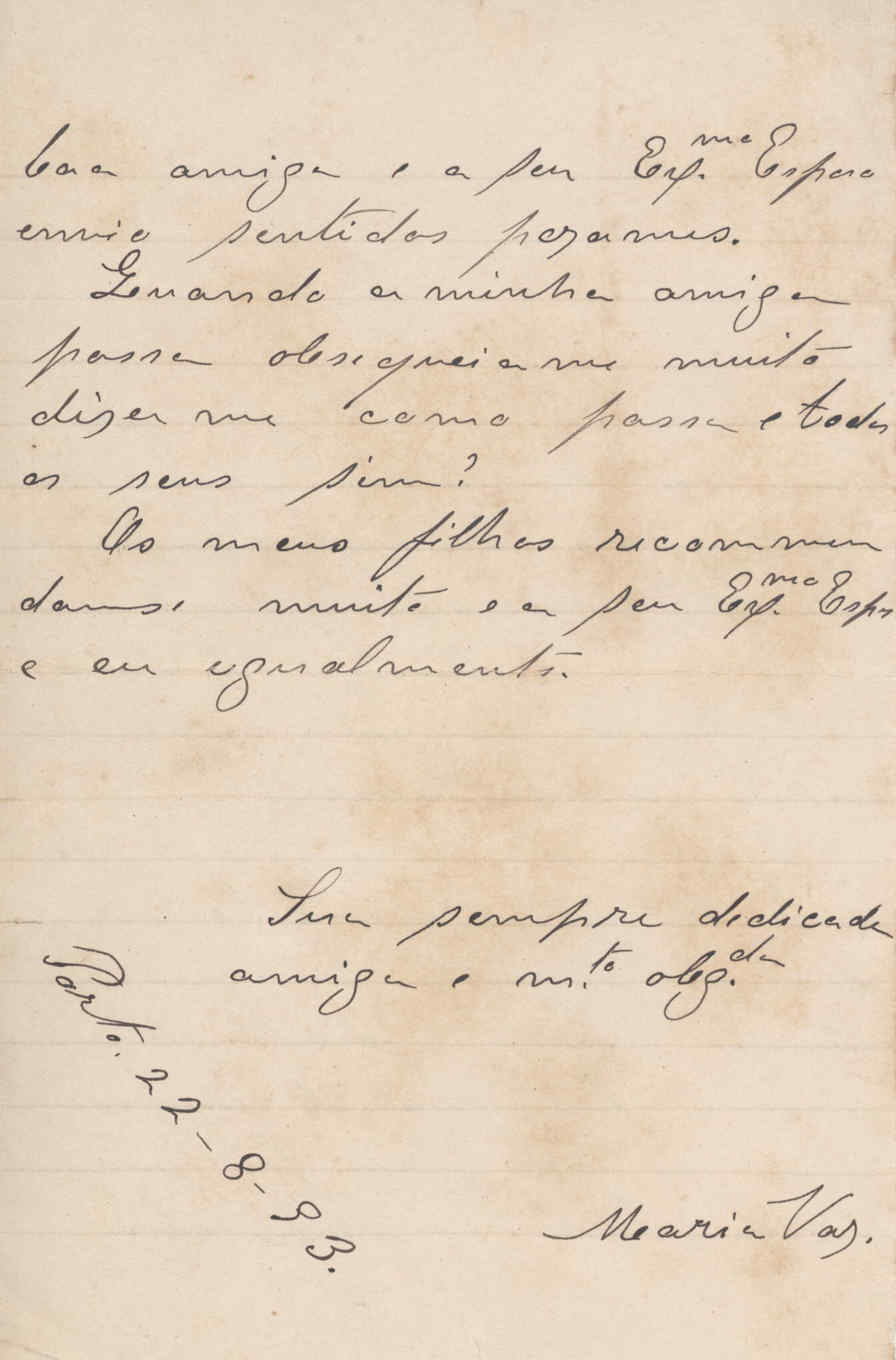 boa amiga e a seu Ex.mo Esposo
envio sentidos pezames.
Quando a minha amiga
possa obsequeiame muito
dizer me como passa e todos
os seus sim?
Os meus filhos recommen
damse muito e a seu Ex.mo Espo
e eu egualmente.
Sua sempre dedicada
amiga e m.to obg.da
Porto. 22-8-93.
Maria Vaz.